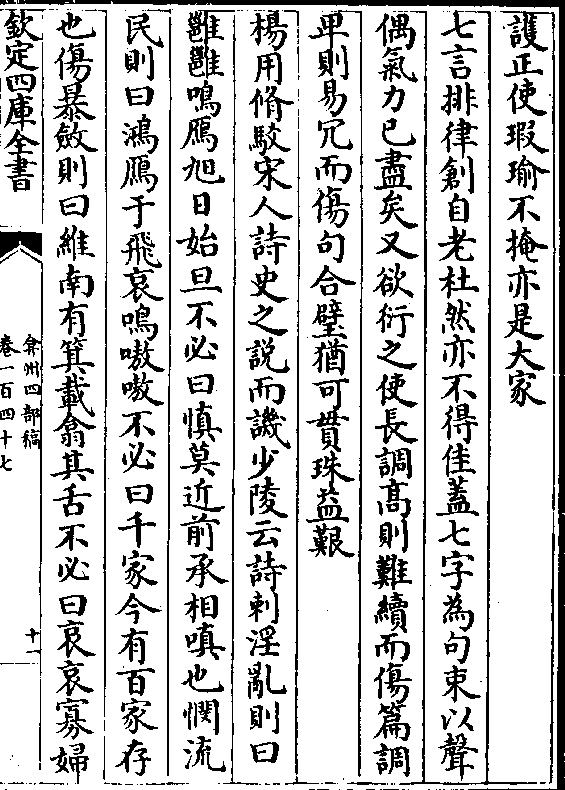 護正使瑕瑜不掩亦是大家
七言排律創自老杜然亦不得佳蓋七字為句束以聲
偶氣力已盡矣又欲衍之使長調髙則難續而傷篇調
卑則易冗而傷句合璧猶可貫珠益艱
楊用脩駁宋人詩史之説而譏少陵云詩刺淫亂則曰
雝雝鳴鴈旭日始旦不必曰慎莫近前承相嗔也憫流
民則曰鴻鴈于飛哀鳴嗷嗷不必曰千家今有百家存
也傷暴斂則曰維南有箕載翕其舌不必曰哀哀寡婦
欽定四庫全書
弇州四部稿
卷一百四十七
十一